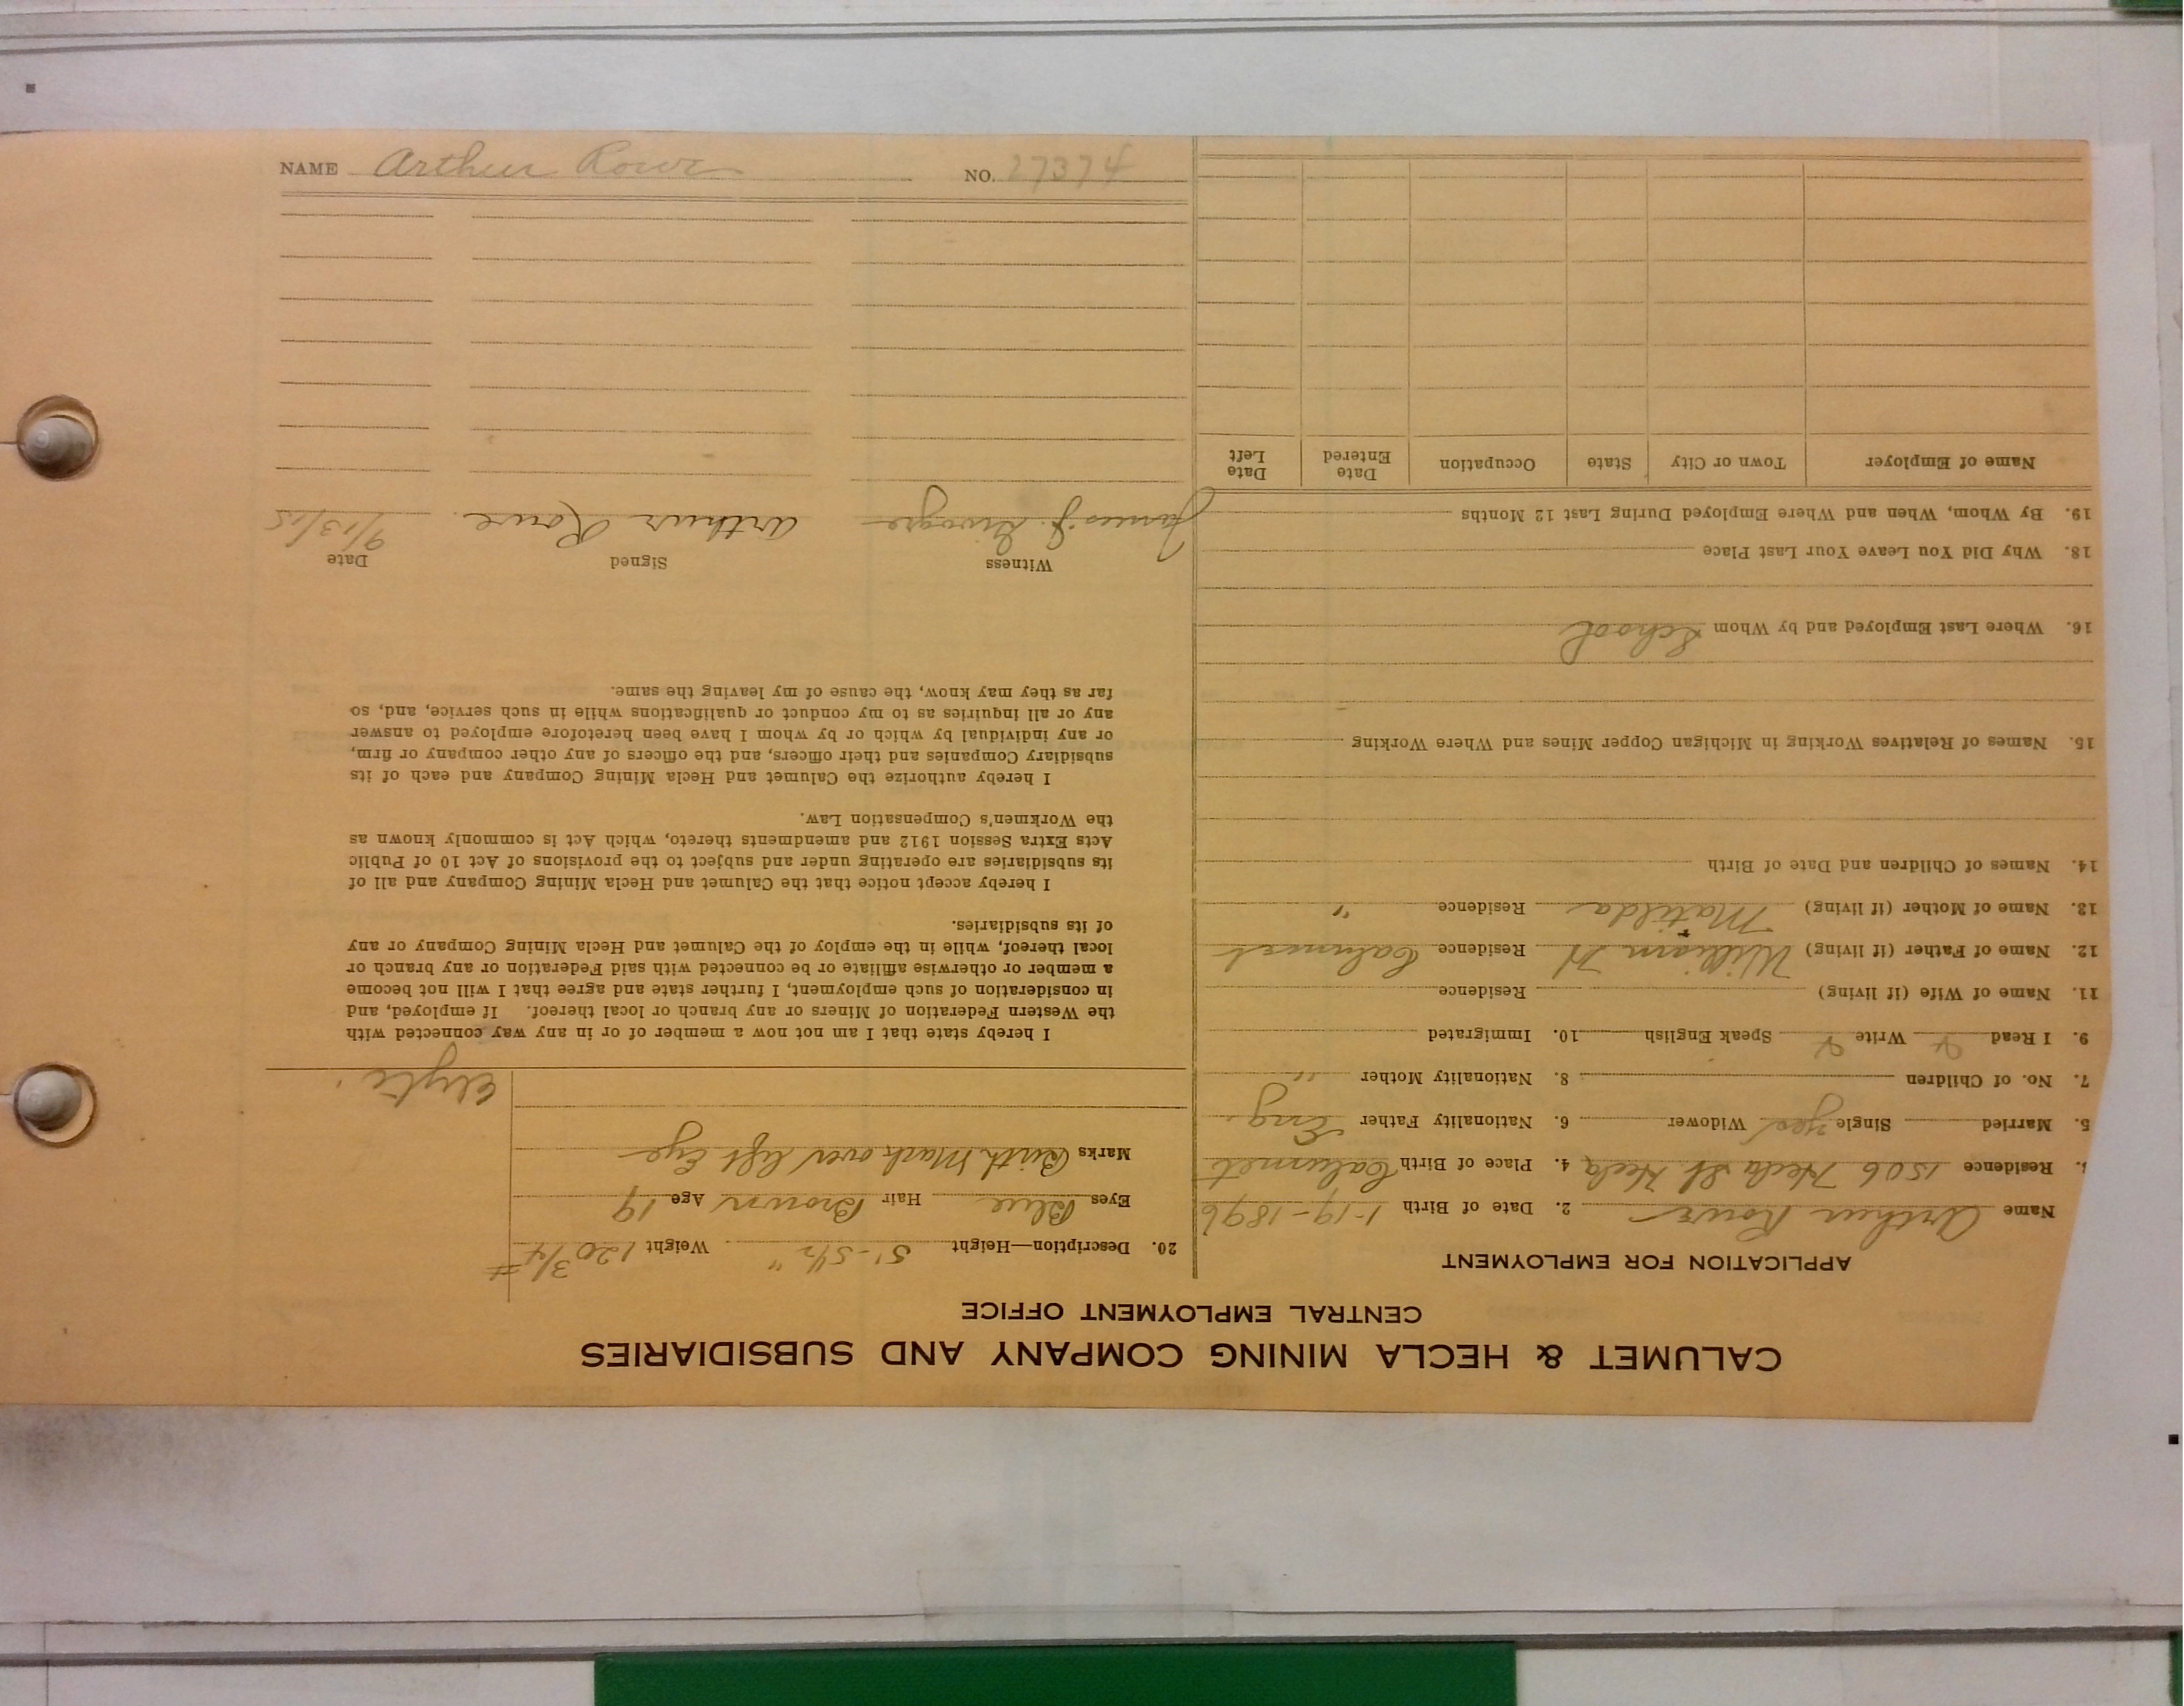 CALUMET & HECLA MINING COMPANY AND SUBSIDIARIES
CENTRAL EMPLOYMENT OFFICE
APPLICATION FOR EMPLOYMENT
Name Arthur Rowe 2. Date of Birth 1-19-1896
Residence 1506 Hecla St. Hecla 4. Place of Birth Calumet
5. Married Single yes Widower 6. Nationality Father Eng.
7. No. of Children 8. Nationality Mother "
9. I Read Write Speak English 10. Immigrated
11. Name of Wife (if living) Residence
12. Name of Father (if living) William H Residence Calumet
13. Name of Mother (if living) Matilda Residence "
14. Names of Children and Date of Birth
15. Names of Relatives Working in Michigan Copper Mines and Where Working
16. Where Last Employed and by Whom School
18. Why Did You Leave Your Last Place
19. By Whom, When and Where Employed During Last 12 Months
Name of Employer Town or City State Occupation Date Entered Date Left
20. Description—Height 5'-5 1/2" Weight 120 3/4 #
Eyes Blue Hair Brown Age 19
Marks Birth Mark over left Eye
I hereby state that I am not now a member of or in any way connected with
the Western Federation of Miners or any branch or local thereof. If employed, and
in consideration of such employment, I further state and agree that I will not become
a member or otherwise affiliate or be connected with said Federation or any branch or
local thereof, while in the employ of the Calumet and Hecla Mining Company or any
of its subsidiaries.
I hereby accept notice that the Calumet and Hecla Mining Company and all of
its subsidiaries are operating under and subject to the provisions of Act 10 of Public
Acts Extra Session 1912 and amendments thereto, which Act is commonly known as
the Workmen's Compensation Law.
I hereby authorize the Calumet and Hecla Mining Company and each of its
subsidiary Companies and their officers, and the officers of any other company or firm,
or any individual by which or by whom I have been heretofore employed to answer
any or all inquiries as to my conduct or qualifications while in such service, and, so
far as they may know, the cause of my leaving the same.
Witness Signed Date
James J. Arthur Rowe. 9/13/15
NAME Arthur Rowe NO. 27374